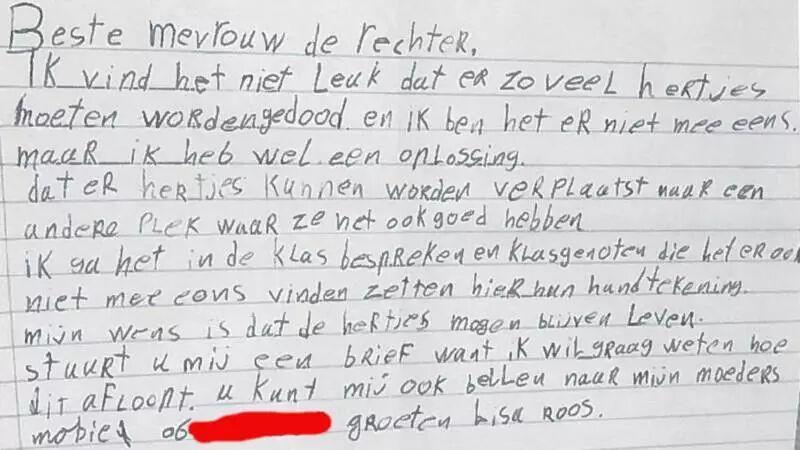 Beste mevrouw de rechter,
Ik vind het niet leuk dat er zoveel hertjes
moeten wordengedood. en ik ben het er niet mee eens.
maar ik heb wel een oplossing.
dat er hertjes kunnen worden verplaatst naar een
andere plek waar ze het ook goed hebben
ik ga het in de klas bespreken en klasgenoten die het er ook
niet mee eens vinden zetten hier hun handtekening.
mijn wens is dat de hertjes mogen blijven leven.
stuurt u mij een brief want ik wil graag weten hoe
dit afloopt. u kunt mij ook bellen naar mijn moeders
mobiel 06 groeten Lisa Roos.